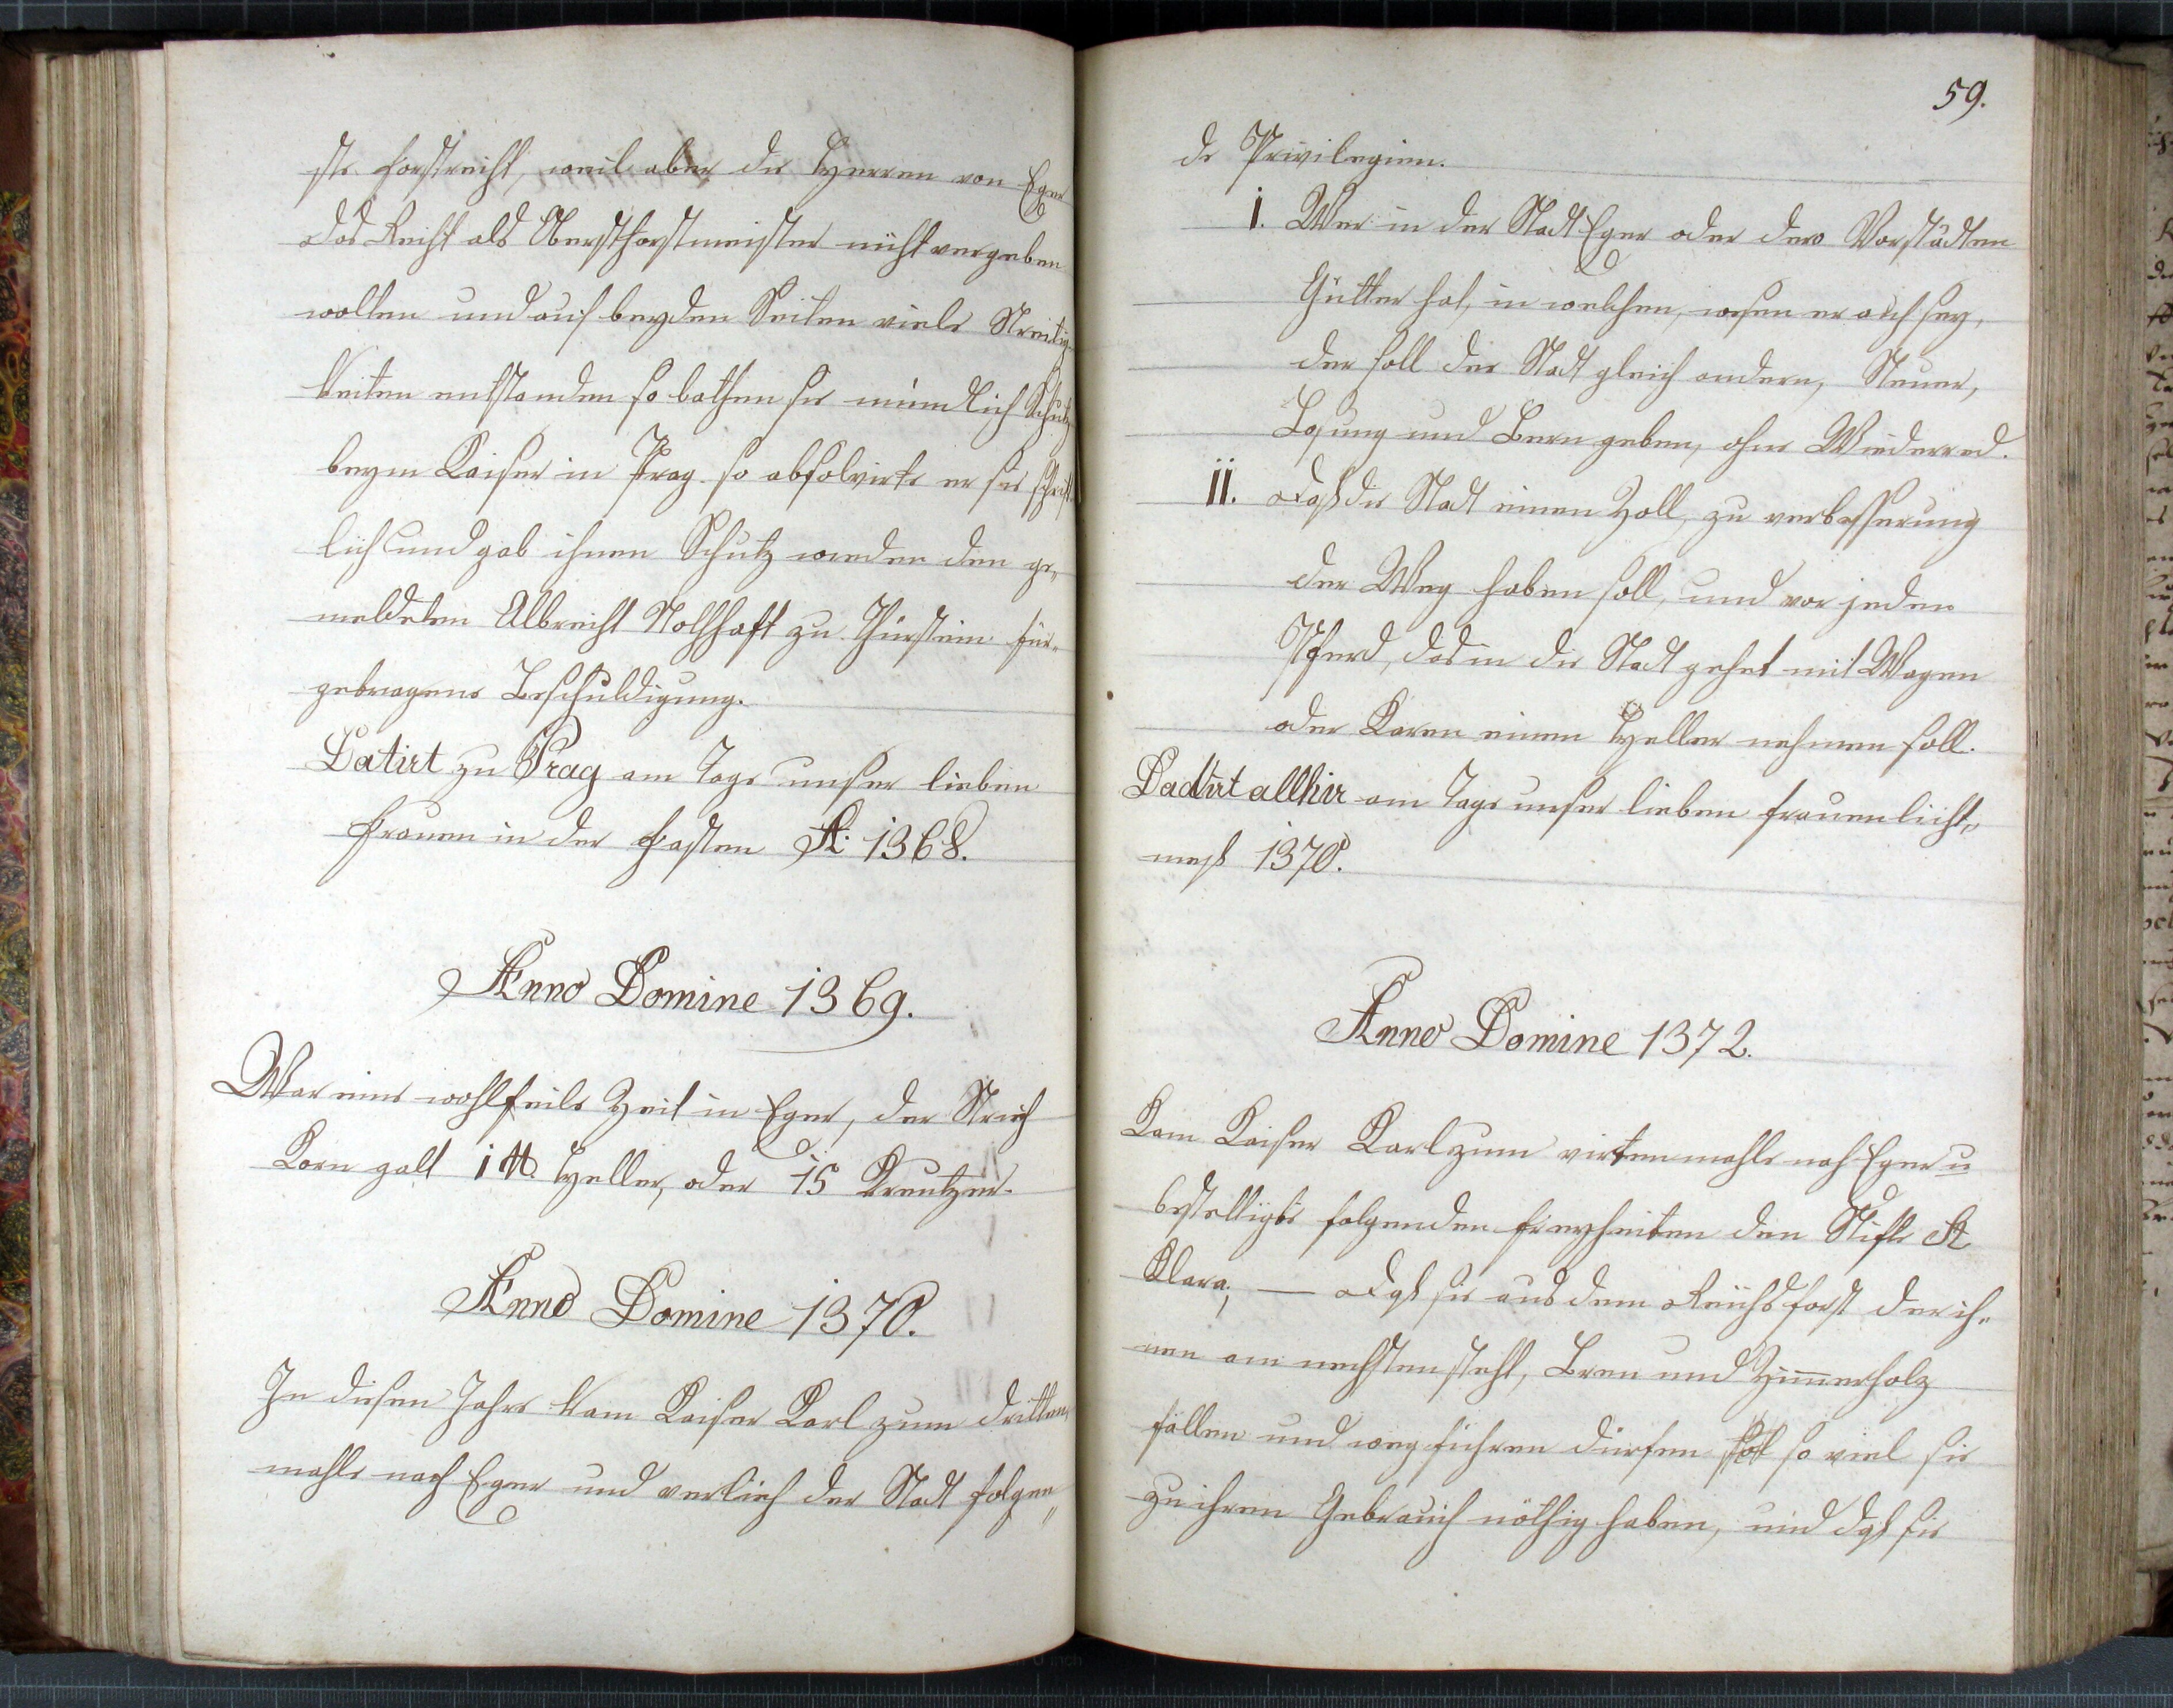 ste Forstrecht, weil aber die Herren von Eger
das Recht als Oberstforstmeister nicht vergeben
wolten und auf beyden Seiten viele Streitig-
keiten entstanden so bathen sie mündlich Schutz
beym Kaiser in Prag. so absolvirte er sie schrift
lich und gab ihnen Schutz wieder den ge„
meldeten Albrecht Nothhaft zu Thierstein für„
gebragene Beschuldigung.
Datirt zu Prag am Tage unser lieben
Frauen in der Fasten A: 1368.
Anno Domine 1369.
War eine wohlfeile Zeit in Eger, der Strich
Korn galt 1 ℔. Heller, oder 15 Kreutzer.
Anno Domine 1370.
In diesen Jahre kam Kaiser Karl zum dritten
mahle nach Eger und verlieh der Stadt folgen„
59.
de Privilegien.
I. Wer in der Stadt Eger oder dero Vorstädten
Gütter hat, in welchen, wesen er auch sey,
der soll der Stadt gleich andern, Steuer,
Losung und Bern geben, ohne Wiederred.
II. daß die Stadt einen Zoll, zu verbesserung
der Weg haben soll, und vor jeden
Pferd, das in die Stadt gehet mit Wagen
oder Karen einen Heller nehmen soll.
Dadirt allhir am Tage unser lieben Frauenlicht„
meß 1370.
Anno Domine 1372.
Kam Kaiser Karl zum virten mahle nach Eger u
bestettigte folgenden Freyheiten den Stifte St
Klara; — daß sie aus dem Reichsforst der ih„
nen am nechsten steht, Bren und Zimerholz
fällen und weg führen dürfen so viel sie
zu ihren Gebrauch nöthig haben, und daß sie